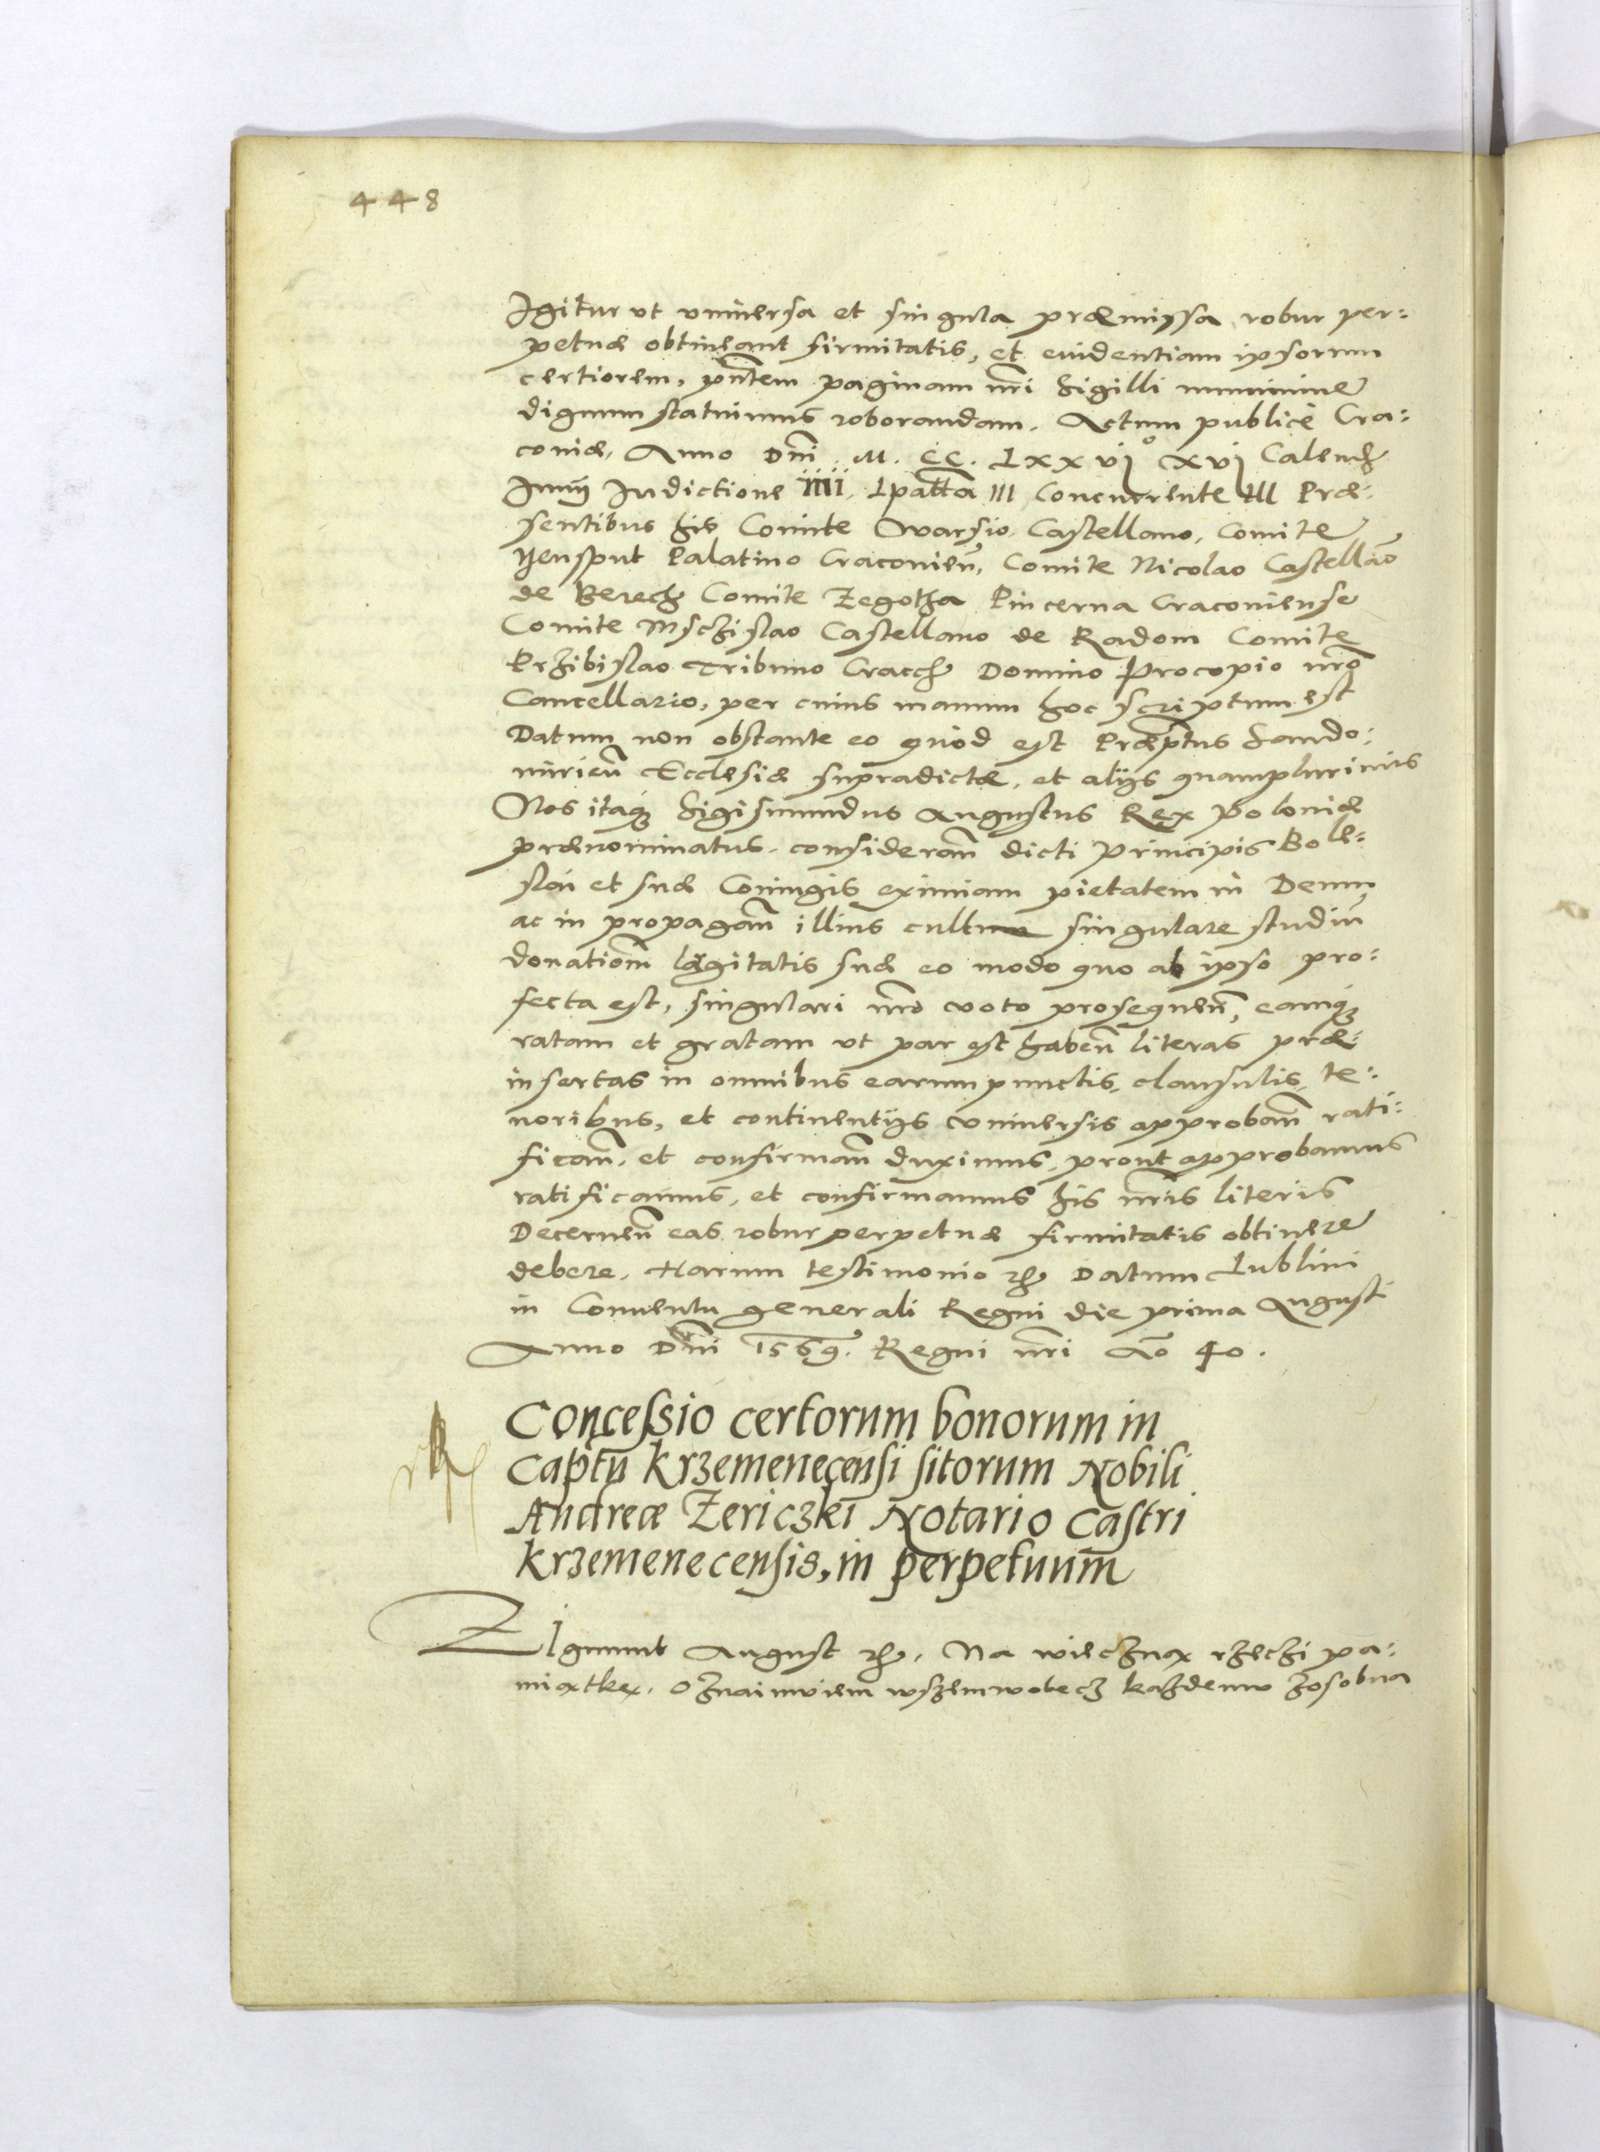 448
Igitur ut universa et singula præmissa robur per-
petuæ obtineant firmitatis, et evidentiam ipsorum
certiorem, pntem paginam nri sigilli munimine
dignum statuimus roborandam. Actum publice Cra-
coviæ, Anno Dni M. CC. Lxx vi° xvi Calend
Iunij Indictione IIII. Ipatta III Concurrente III Præ-
sentibus his Comite Warsio Castellano, Comite
Palatino Cracovien, Comite Nicolao Castellão
de Comite Zegotha Pincerna Cracoviense
Comite Mschislao Castellano de Radom Comite
Krzibislao Tribuno Domino Procopio nro
Cancellario, per cuius manum hoc scriptum est
Datum non obstante eo quod est Præptus Sando-
mirien Ecclesiæ supradictæ, et alijs quamplurimis
Nos itaq Sigismundus Augustus Rex Poloniæ
prænominatus, consideran dicti Principis Bole-
slai et suæ Coniugis eximiam pietatem in Deum
ac in propagan illius cultum singulare studiū
donationem lægitatis suæ eo modo quo ab ipso pro-
fecta est, singulari nro voto prosequen, eamq
ratam et gratam ut par est haben literas præ-
insertas in omnibus earum punctis, clausulis, te-
noribus, et continentijs universis approban rati-
fican, et confirman duximus, prout approbamus
ratificamus, et confirmamus his nris literis
Decernen eas robur perpetuæ firmitatis obtinere
debere. Harum testimonio etc Datum Lublini
in Conventu generali Regni die prima Augusti
Anno Dni 1569. Regni nri Ao 40.
Concessio certorum bonorum in
Captu krzemenecensi sitorum Nobili
Andreæ Zericzki Notario Castri
krzemenecensis, in perpetuum
Zigmunt August etc. Na wiecznąx rzeczi pa-
miątkę. Oznaimuiem wszemwobecz kazdemu zosobna